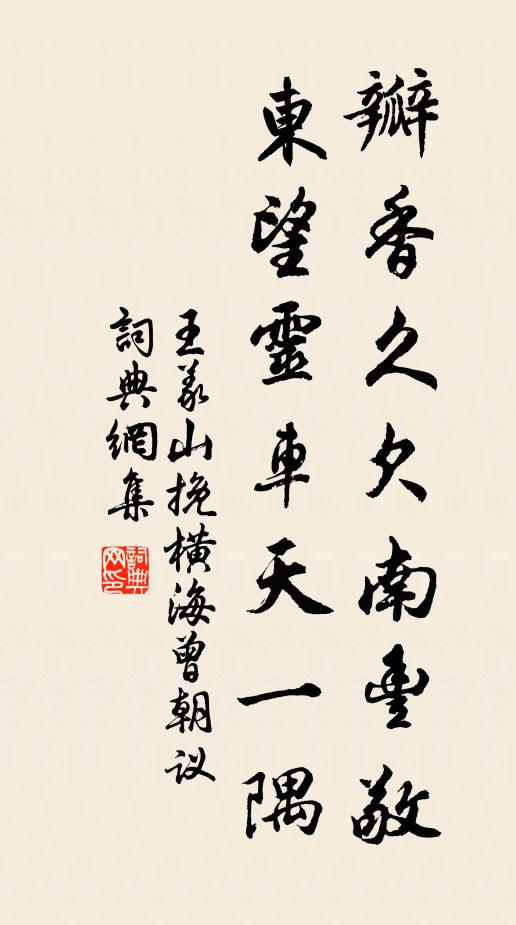 瓣香久欠南豐敬
東望靈車天一隅
王义山挽橫海曾朝议
詞典網集
詞典网印